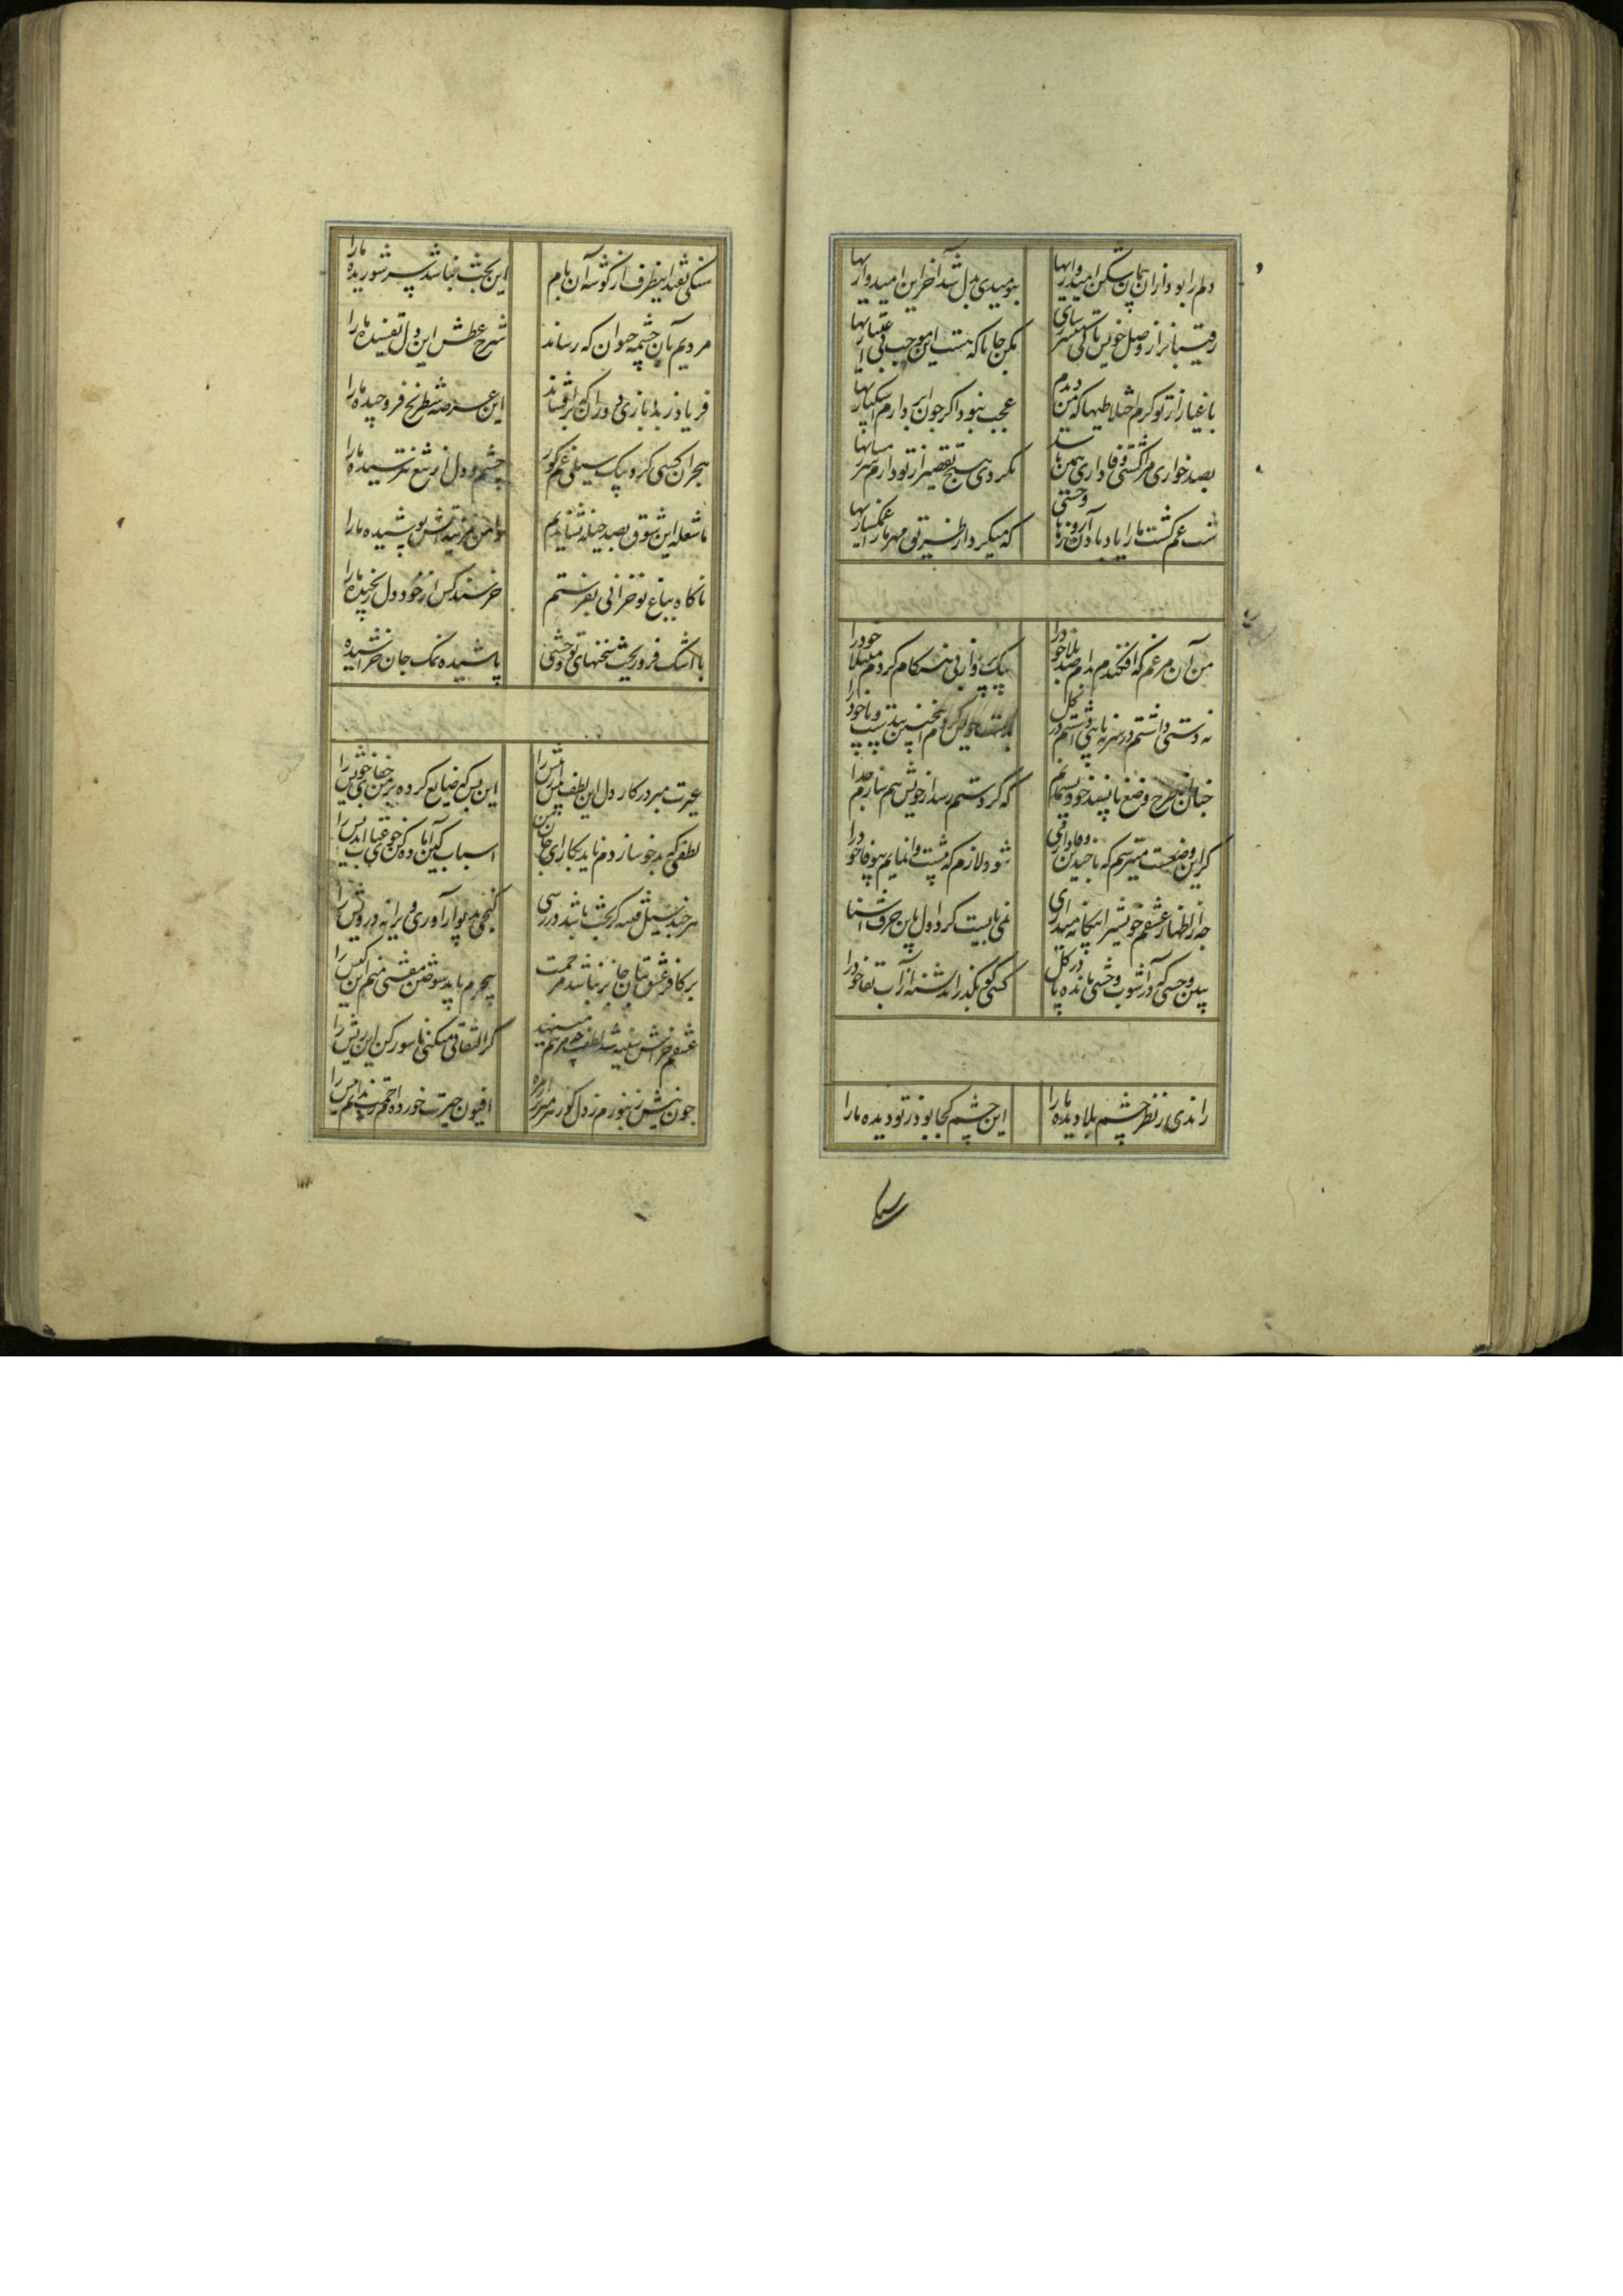 دلم را بود از آن پیمان شکن امیدواریها
بنومیدی بدل شد آخر این امیدواریها
رقیبانرا ز وصل خویش تا کی معتبر سازی
مکن جانا که هست این موجب بی اعتباریها
باغیار از تو گرم اختلاطیها که من دیدم
عجب نبود اگر چون ابر دارم اشکباریها
بصد خواری مرا کشتی وفاداری همین باشد
نکردی هیچ تقصیر از تو دارم شرمساریها
شب غم کشت ما را یاد باد آن روزها وحشی
که میکرد از طریق مهر ما را غمگساریها
من آن مرغم که افکندم بدام صد بلا خود را
بیک پرواز بی هنگام کردم مبتلا خود را
نه دستی داشتم در سر نه پایی داشتم در گل
بدست خویش کردم اینچنین بی دست و پا خود را
چنان از طرح وضع ناپسند خود گریزانم
که گر دستم رسد از خویش هم سازم جدا خود را
گر این وضعست میترسم که با چندین وفاداری
شود لازم که پیشت وانمایم بیوفا خود را
چو از اظهار عشقم خویش را بیگانه میداری
نمی بایست کرد اول باین حرف آشنا خود را
ببین وحشی که در آشوب وحشی مانده پا در گل
کسی کو بگذراند تشنه از آب بقا خود را
راندی ز نظر چشم بلا دیده ما را
این چشم کجا بود ز تو دیده ما را
سنگی نفتد اینطرف از گوشه آن بام
این بخت نباشد سر شوریده ما را
مردیم بآن چشمه حیوان که رساند
شرح عطش این دل تفسیده ما را
فریاد ز بد بازی دوری که برافشاند
این عرصه شطرنج فرو چیده ما را
هجران کسی کرد بیک سیلی غم کور
چشم و دل از تیغ نترسیده ما را
ما شعله این شوق بصد حیله نشاندیم
دامن مزنید آتش پوشیده ما را
ناگاه بباغ تو خزانی بفرستم
خرسند کن از خود دل رنجیده ما را
با اشک فرو ریخت سخنهای تو وحشی
پاشیده نمک جان خراشیده ما را
غیرت مبر در کار دل این لطف بیش از پیش را
این بس که ضایع کرده بر من جفای خویش را
لطفی که بدخو سازدم ناید بکار ای جان من
اسباب کین آماده کن خوی عتاب اندیش را
هر چند سیل فتنه گر بخت باشد در رسی
گنجی بدیوار آوری ویرانه درویش را
بر کافر عشق بتان جایز نباشد مرحمت
بیجرم باید سوختن مفتی منم این کیش را
عشقم خراش سینه شد گو لطف تو مرهم منه
گر التفاتی میکنی ناسور کن این ریش را
چون نیش زنبورم ز دل گو زهر میریز از مژه
افیون حیرت خورده ام زحمت ندانم نیش را
سنگی